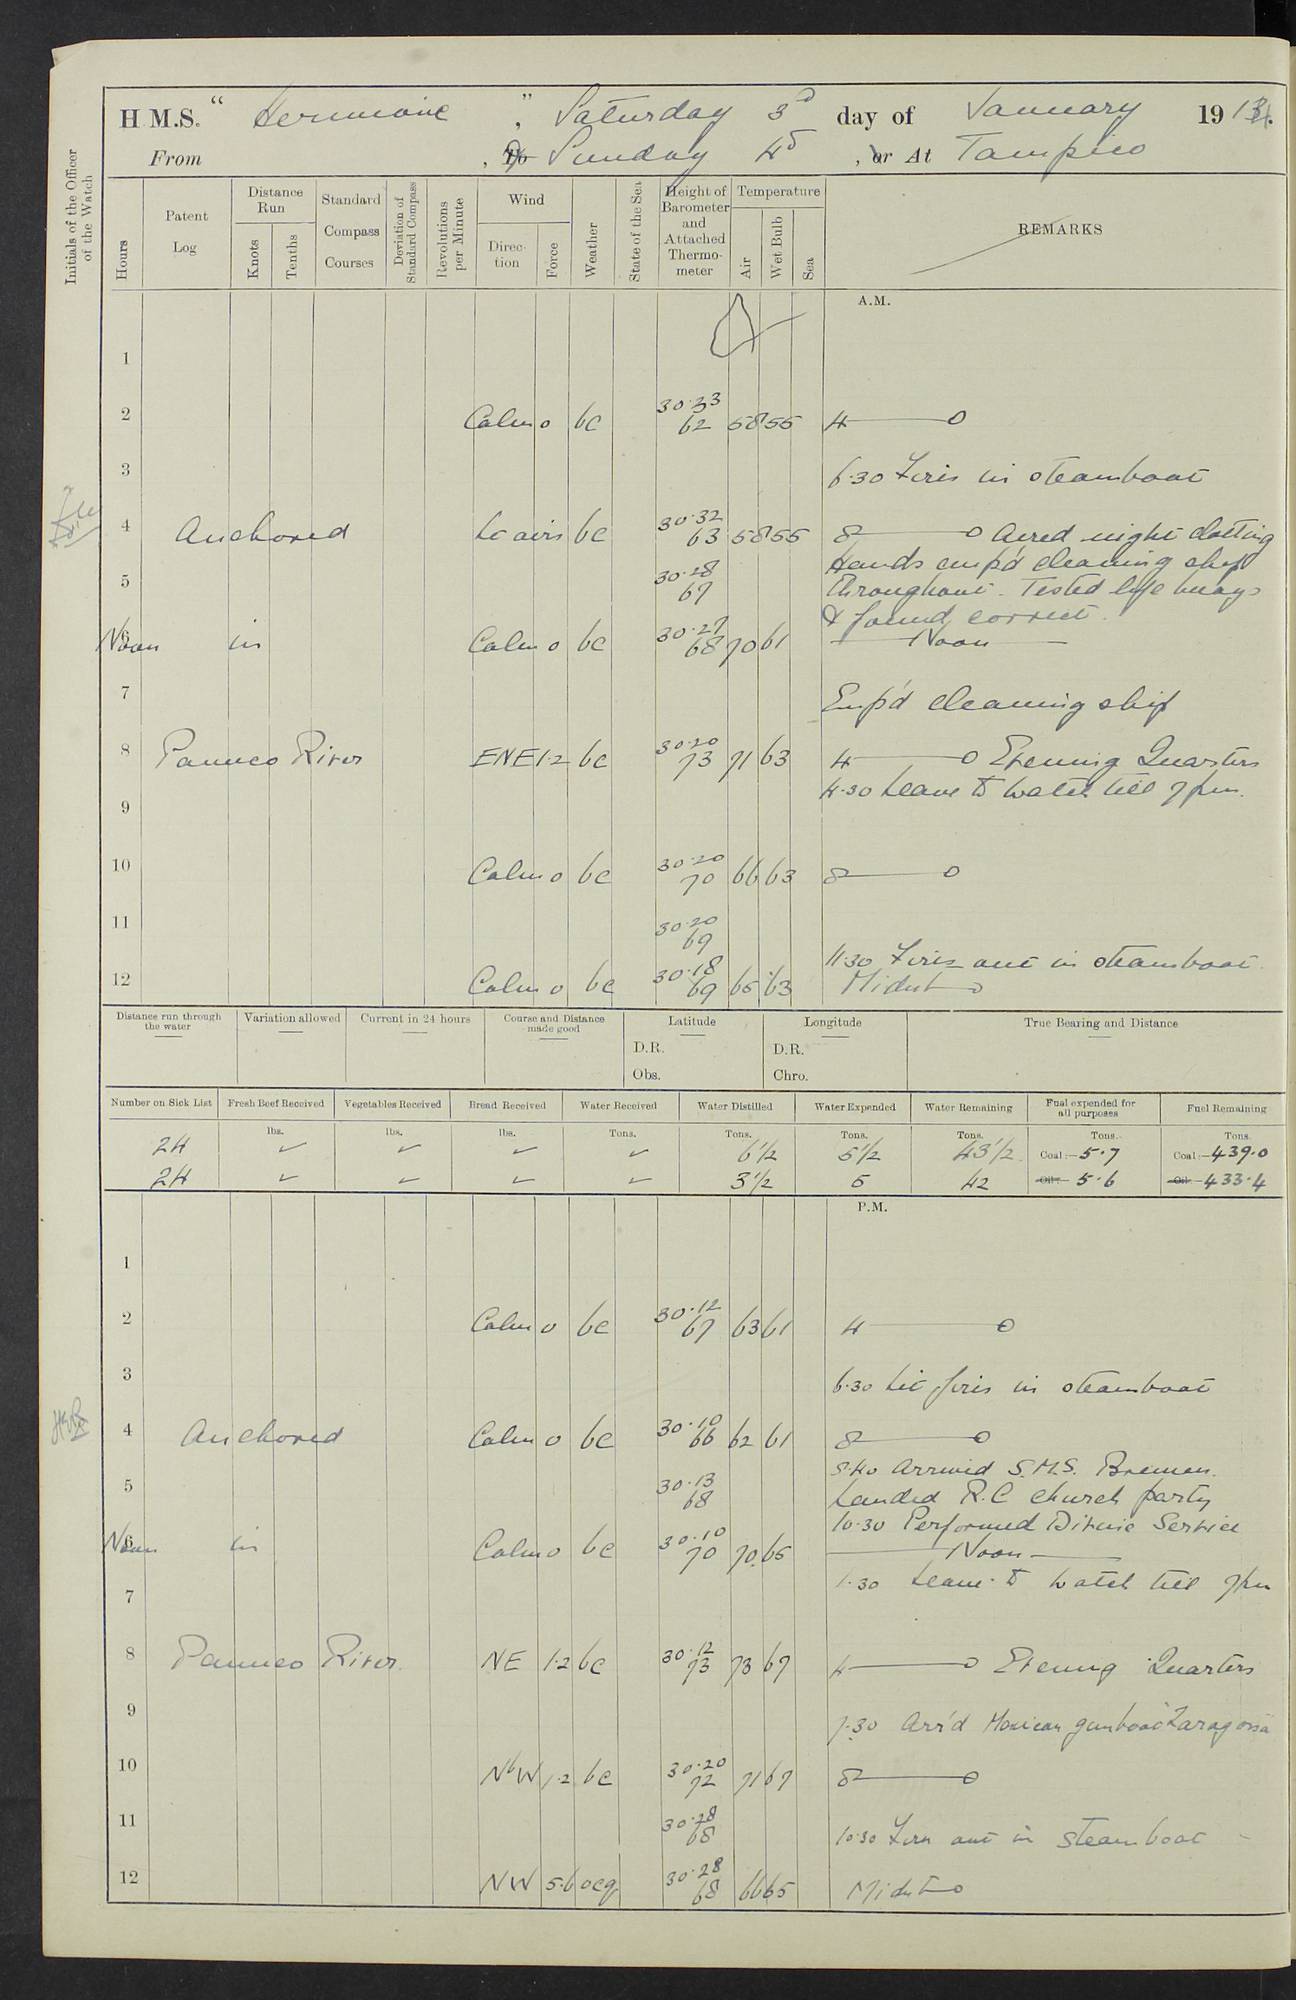 H.M.S. " Hermione ", Saturday 3d day of January 1914.
From , To & Sunday 4th , or At Tampico
Initials of the Officer of the Watch
Hours
Patent Log
Distance Run
Knots
Tenths
Standard Compass Courses
Deviation of Standard Compass
Revolutions per Minute
Wind
Direction
Force
Weather
State of the Sea
Height of Barometer and Attached Thermometer
Temperature
Air
Wet Bulb
Sea
REMARKS
A.M.
1
2 Calm 0 bc 30·33 62 58 55 4 ——— 0
3 6·30 Fires in steamboat
4 Anchored Lt airs bc 30·32 63 58 55 8 ——— 0 Aired night clothing
Hands emp'd cleaning ship
5 30·28 67 throughout. Tested life buoys
& found correct.
6 Noon in Calm 0 bc 30·27 68 70 61 ——— Noon ———
7 Emp'd cleaning ship
8 Panuco River ENE 1·2 bc 30·20 73 71 63 4 ——— 0 Evening Quarters
4·30 Leave to watch till 7pm.
9
10 Calm 0 bc 30·20 70 66 63 8 ——— 0
11 30·20 69
11·30 Fires out in steamboat.
12 Calm 0 bc 30·18 69 65 63 Midnt — 0
Distance run through the water
Variation allowed
Current in 24 hours
Course and Distance made good
Latitude
D.R.
Obs.
Longitude
D.R.
Chro.
True Bearing and Distance
Number on Sick List Fresh Beef Received Vegetables Received Bread Received Water Received Water Distilled Water Expended Water Remaining Fuel expended for all purposes Fuel Remaining
lbs. lbs. lbs. Tons. Tons. Tons. Tons. Tons. Tons.
24 ✓ ✓ ✓ ✓ 6½ 5½ 43½ Coal:— 5·7 Coal:— 439·0
24 ✓ ✓ ✓ ✓ 3½ 5 42 Oil:— 5·6 Oil:— 433·4
P.M.
1
2 Calm 0 bc 30·12 67 63 61 4 ——— 0
3 6·30 Lit fires in steamboat
4 Anchored Calm 0 bc 30·10 66 62 61 8 ——— 0
8·40 Arrived S.M.S. Bremen.
5 30·13 68 Landed R.C church party
10·30 Performed Divine Service
6 Noon in Calm 0 bc 30·10 70 70 65 ——— Noon ———
1·30 Leave to watch till 7pm
7
8 Panuco River NE 1·2 bc 30·12 73 73 67 4 ——— 0 Evening Quarters
9 7·30 Arr'd Mexican gunboat "Zaragossa"
10 NbW 1·2 bc 30·20 72 71 67 8 ——— 0
11 30·28 68 10·30 Fires out in steamboat —
12 NW 5·6 ocq 30·28 68 66 65 Midnt — 0